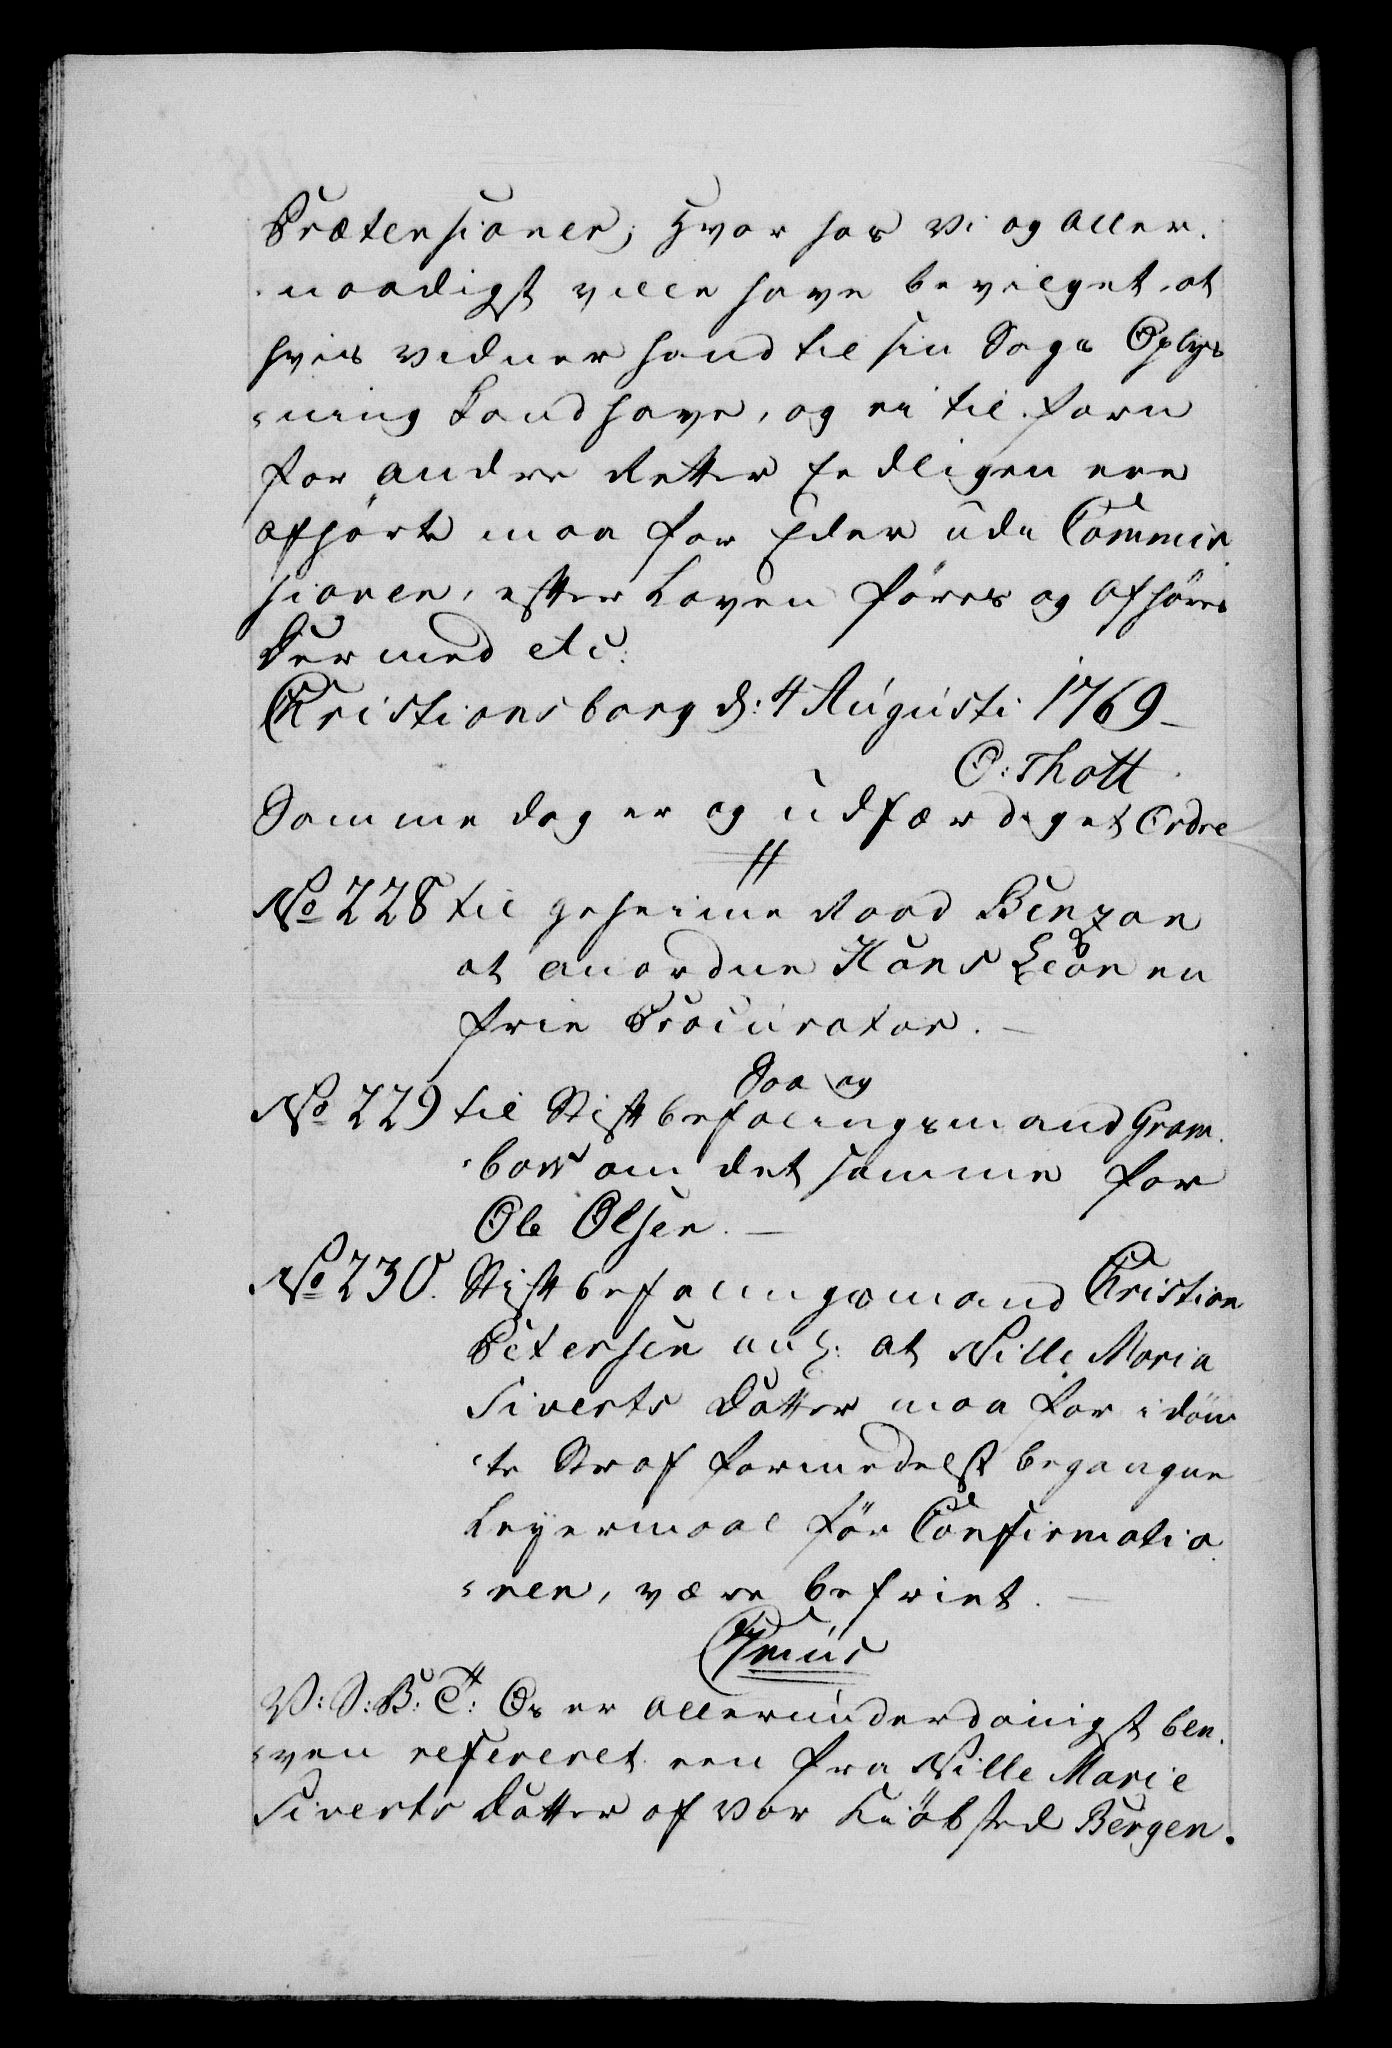 Prætensioner; Hvor hos Vi og aller-
-naadigst ville have bevilget, at
hvis Vidner hand til sin Sags Oplys
-ning kand have, og ei tilforn
for andre Retter Eedligen ere
afhørte maa for Eder udi Commis
sionen, efter Loven føres og afhøres
Dermed etc:
Christiansborg d: 4 Augusti 1769-
O: Thott
Samme dag er og udfærdiget Ordre
No 228 til geheime Raad Benzon
at anordne Hans en
frie Procurator. -
Saa og
No 229 til Stiftbefalingsmand Gram-
-bow om det samme for
Ole Olsen. -
No 230. Stiftbefalingsmand Christian
Petersen anl: at Nille Maria
Siverts Datter maa for idøm
-te Straf formedelst begangne
Leyermaal før Confirmatio
-nen, være befriet. -
V: S: B: T: Os er allerunderdanigst ble-
-ven refereret een fra Nille Marie
Siverts Datter af Vor Kiøbsted Bergen.